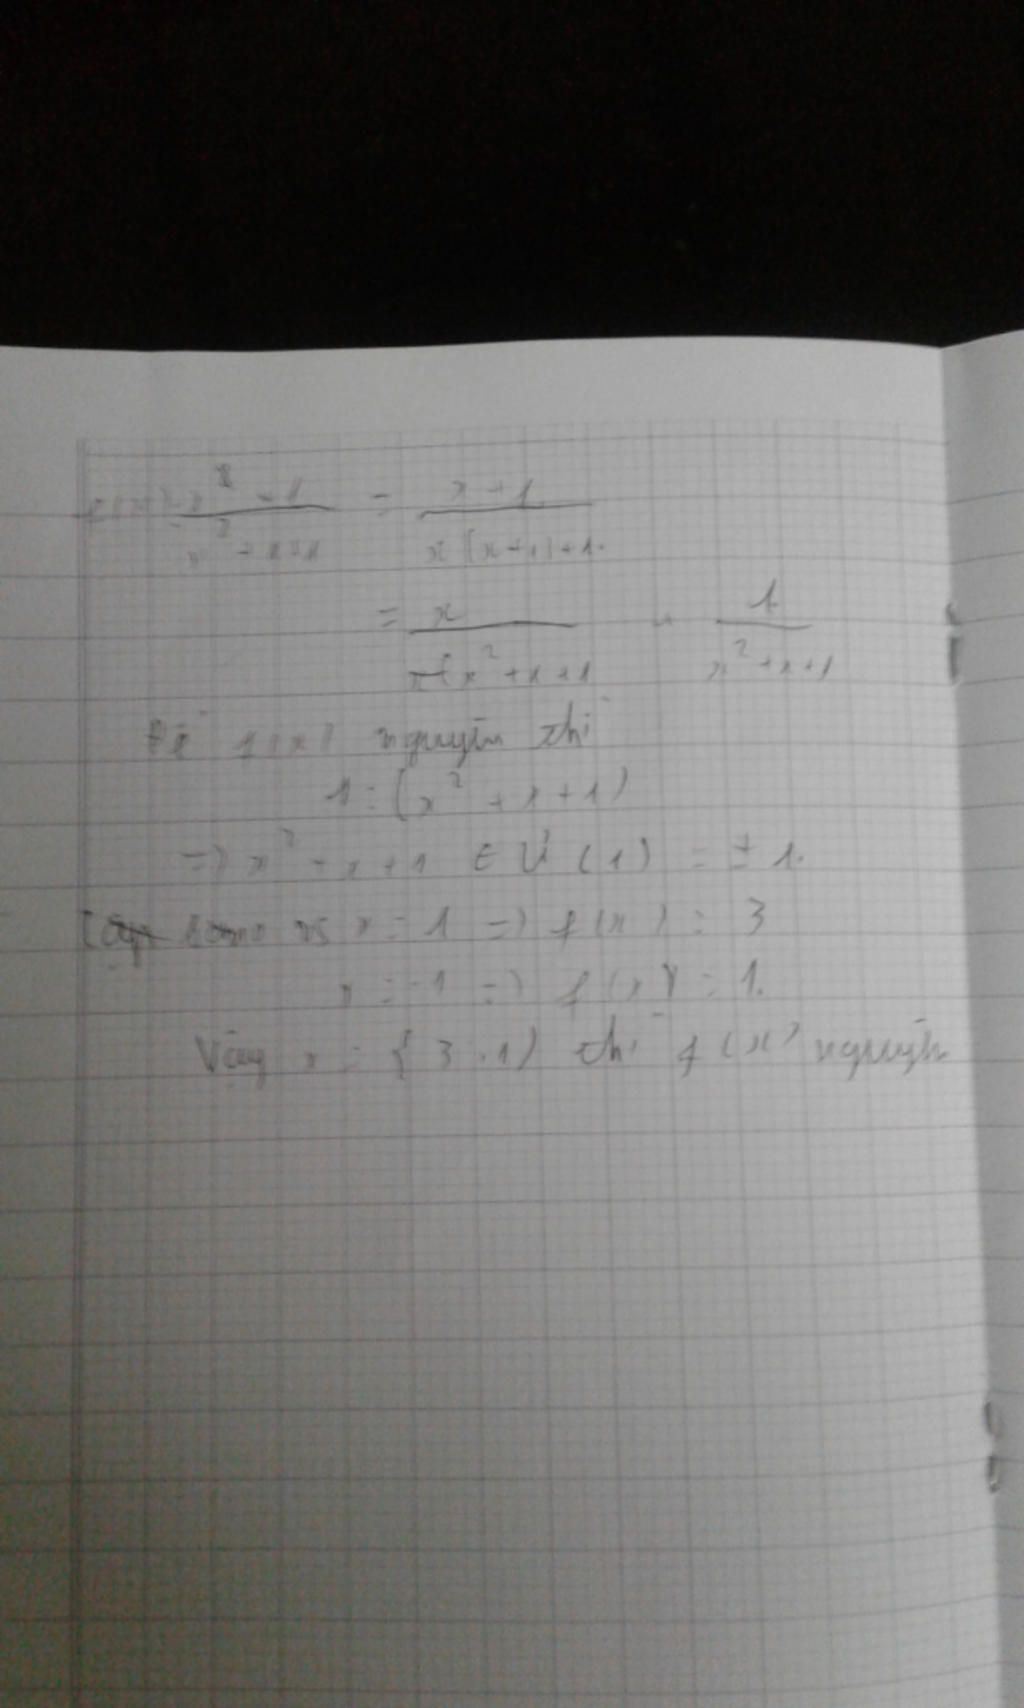 f(x) = x² - 1 / x² + x + 1 = x - 1 / x (x + 1) + 1.
= x / x² + x + 1 - 1 / x² + x + 1
Để f(x) nguyên thì
1 : (x² + x + 1)
=> x² + x + 1 ∈ Ư (1) = ± 1.
x = 1 => f(x) = 3
x = -1 => f(x) = 1.
Vậy x = { 3, 1) thì f(x) nguyên